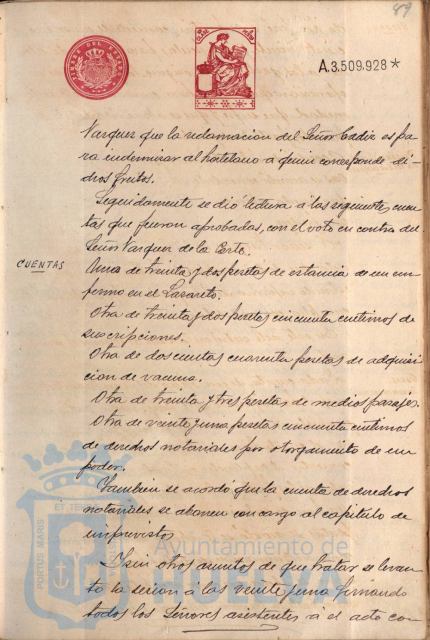 89
TIMBRE DEL ESTADO
A.3.509.928*
Vazquez que la reclamacion del Señor Cadiz es pa
ra indemnizar al hortelano á quien corresponde di-
chos frutos.
Seguidamente se dió lectura á las siguientes cuen
tas que fueron aprobadas, con el voto en contra del
Señor Vazquez de la Corte.
CUENTAS
Una de treinta y dos pesetas de estancia de un en
fermo en el Lazareto.
Otra de treinta y dos pesetas cincuenta centimos de
suscripciones.
Otra de doscientas cuarenta pesetas de adquisi
cion de vacuna.
Otra de treinta y tres pesetas de medios pasajes.
Otra de veinte y una pesetas cincuenta centimos
de derechos notariales por otorgamiento de un
poder.
Tambien se acordó que la cuenta de derechos
notariales se abonen con cargo al capitulo de
imprevistos
Y sin otros asuntos de que tratar se levan
tó la sesion á las veinte y una firmando
todos los Señores asistentes á el acto con
PORTUS MARIS ET TERRAE
Ayuntamiento de
HUELVA